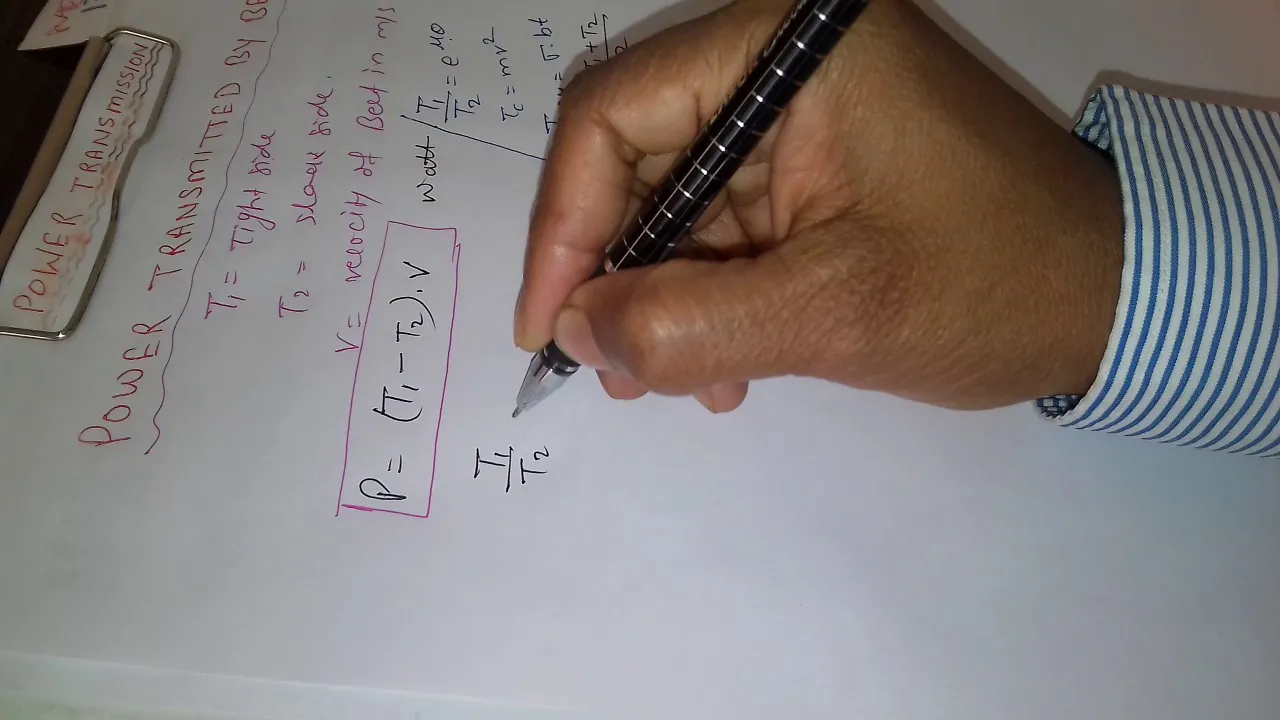 POWER TRANSMISSION
POWER TRANSMITTED BY BE
T1 = Tight side
T2 = slack side.
V = velocity of Belt in m/s
P = (T1 - T2).V watt
T1/T2 = e^μθ
Tc = mv²
= σ.bt
T1 + T2
T1/T2